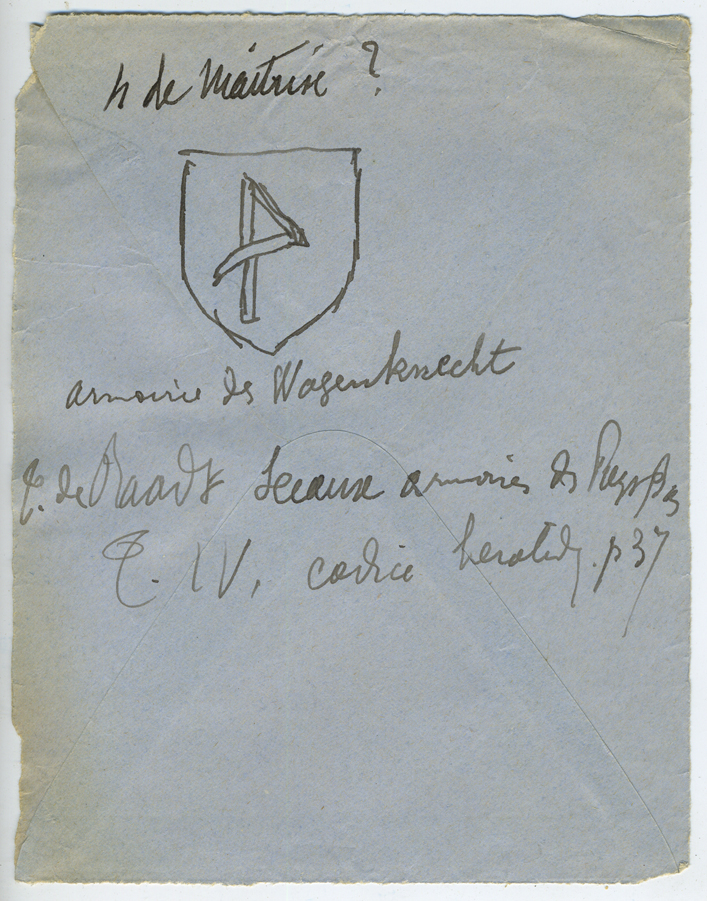 4 de Maîtrise ?
armoirie des Wagenknecht
de Raadt Sceaux armoiriés des Pays Bas
T. IV, p 37